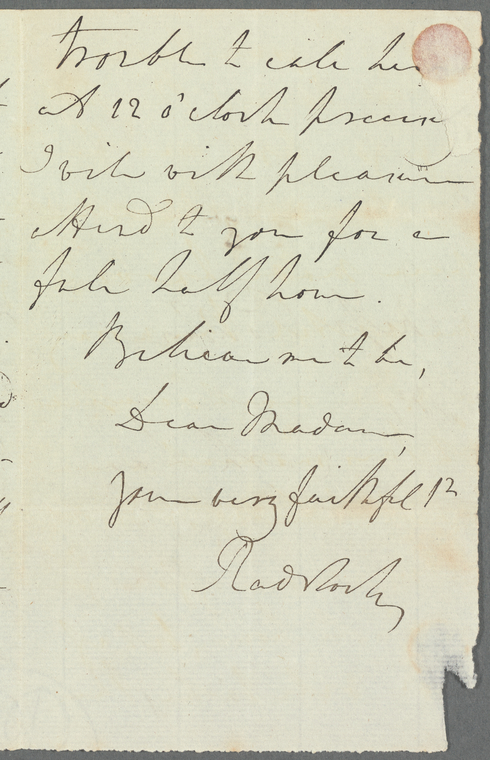 trouble to call here
at 12 o'clock precise
I will with pleasure
attend to you for a
full half hour.
Believe me to be,
Dear Madam,
your very faithful
Radstock